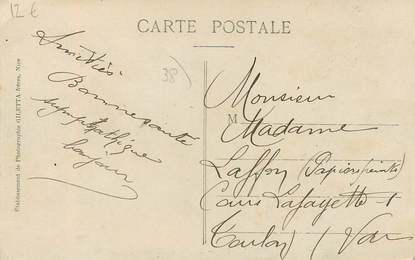 12 €
CARTE POSTALE
38
Amitiés
Bonne santé
sympathique
bonjour
Monsieur
M
Madame
Laffon (Papiers peints)
Cours Lafayette - 1
Toulon (Var
Etablissement de Photographie GILETTA frères, Nice